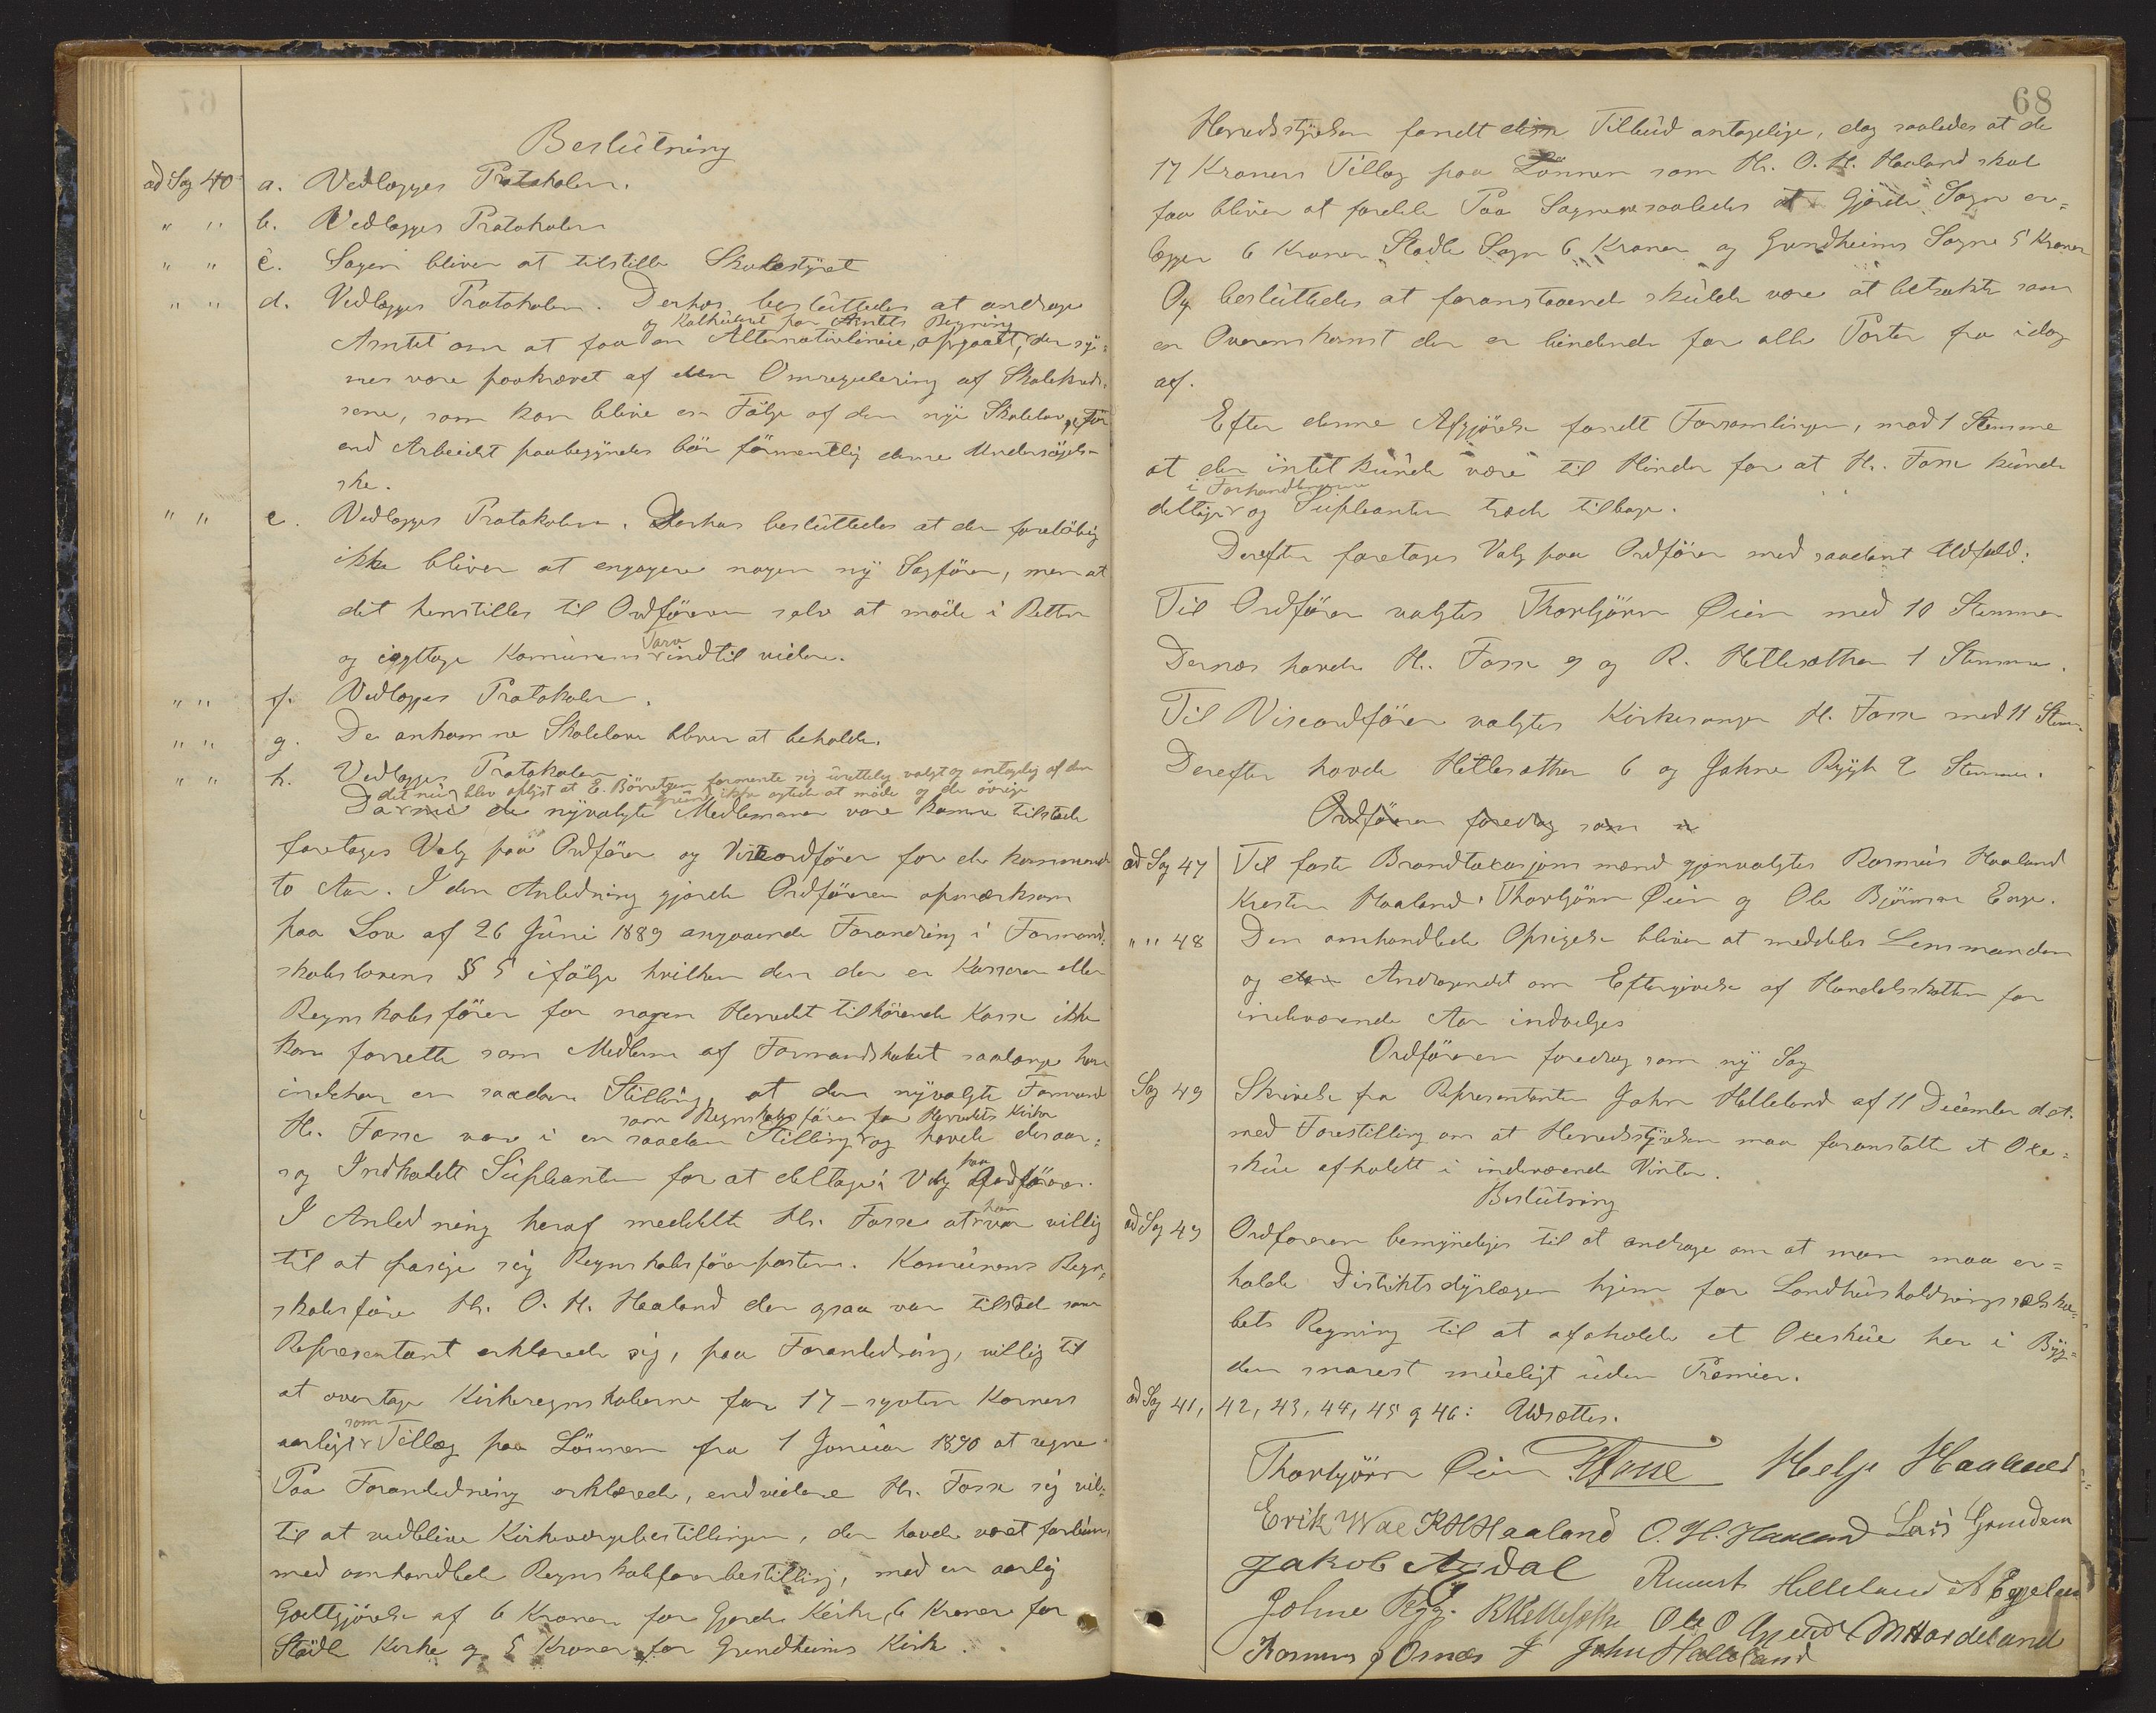 Beslutning
ad Sag 40 a. Vedlægges Protokolen.
" " b. Vedlægges Protokolen
" " c. Sagen bliver at tilstille Skolestyret
" " d. Vedlægges Protokolen. Derhos besluttedes at andrage
og Kalkuleret for Amtets Regning
Amtet om at faa en Alternativlinie, opgaaet, der sy=
nes være paakrævet af den Omregulering af Skolekred=
sene, som kan blive en Følge af den nye Skolelov, før
end Arbeidet paabegyndes bør førmentlig denne Undersøgelse
ske.
" " e. Vedlægges Protokolen. Derhos besluttedes at der foreløbig
ikke bliver at engagere nogen ny Sagfører, men at
det henstilles til Ordføreren selv at møde i Retten
og iagttage Komunens Tarv indtil videre.
" " f. Vedlægges Protokolen.
" " g. De ankomne Skolelove bliver at beholde.
" " h. Vedlægges Protokolen
det nu blev oplyst at E. Børretzen formente sig urettelig valgt og antagelig af den
Grund ikke agtede at møde og de øvrige
Da nu de nyvalgte Medlemmer vare komne tilstede
foretoges Valg paa Ordfører og Viseordfører for de kommende
to Aar. I den Anledning gjorde Ordføreren opmærksom
paa Lov af 26 Juni 1889 angaaende Forandring i Formand=
skabslovens § 5 ifølge hvilken den der er Kasserer eller
Regnskabsfører for nogen Herredet tilhørende Kasse ikke
kan forrette som Medlem af Formandskabet saalænge han
indehar en saadan Stilling, at den nyvalgte Formand
som Regnskabsfører for Herredets Kirker
Hr. Fosse var i en saadan Stilling og havde desaar=
sag Indkaldt Supleanten for at deltage i Valg paa Ordfører.
I Anledning heraf meddelte Hr. Fosse at han var villig
til at frasige sig Regnskabsførerposten. Komunens Regn=
skabsfører Hr. O. H. Haaland der ogsaa var tilsted som
Representant erklærede sig, paa Foranledning, villig til
at overtage Kirkeregnskaberne for 17 – sytten Kroner
aarligt som Tillæg paa Lønnen fra 1 Januar 1890 at regne.
Paa Foranledning erklærede, endvidere Hr. Fosse sig vil=
til at vedblive Kirkeværgebestillingen, der havde været forbund
med omhandlede Regnskabførerbestilling, mod en aarlig
Godtgjørelse af 6 Kroner for Gjerde Kirke, 6 Kroner for
Stødle Kirke og 5 Kroner for Grindheims Kirke.
68
Herredsstyrelsen fandt disse Tilbud antagelige, dog saaledes at de
17 Kroners Tillæg paa Lønnen som Hr. O. H. Haaland skal
faa bliver at fordele Paa Sognene saaledes at Gjerde Sogn er=
lægger 6 Kroner Stødle Sogn 6 Kroner og Grindheims Sogne 5 Kroner
Og besluttedes at foranstaaende skulde være at betrakte som
en Overenskomst der er bindende for alle Parter fra idag
af.
Efter denne Afgjørelse fandt Forsamlingen, mod 1 Stemme
at der intet kunde være til Hinder for at Hr. Fosse kunde
i Forhandlingerne
deltage og Supleanten træde tilbage.
Derefter foretoges Valg paa Ordfører med saadant Udfald:
Til Ordfører valgtes Thorbjørn Øien med 10 Stemmer
Dernæs havde H. Fosse 9 og R. Hellesæther 1 Stemme.
Til Viseordfører valgtes Kirkesanger H. Fosse med 11 Stem.
Derefter havde Hellesæther 6 og Johne Rygh 2 Stemmer.
Ordføreren foredrog som n
ad Sag 47 Til faste Brandtaxasjons mænd gjenvalgtes Rasmus Haaland
Kristen Haaland, Thorbjørn Øien og Ole Bjørnsen Enge.
" " 48 Den omhandlede Opsigelse bliver at meddeles Lensmanden
og Andragendet om Eftergivelse af Handelsskatten for
indeværende Aar indvilges
Ordføreren foredrog som ny Sag
Sag 49 Skrivelse fra Representanten John Helleland af 11 December d.A.
med Forestilling om at Herredsstyrelsen maa foranstalte et Oxe=
skue afholdt i indeværende Vinter.
Beslutning
ad Sag 49 Ordføreren bemyndiges til at andrage om at man maa er=
holde Distriktsdyrlægen hjem for Landhusholdningsselska=
bets Regning til at afholde et Oxeskue her i Byg=
den snarest mueligt uden Præmier.
ad Sag 41, 42, 43, 44, 45 og 46: Udsættes.
Thorbjørn Øien HFosse Helje Haaland
Erik Wae KHHaaland O. H. Haaland Lars Grindem
Jakob Aṛdal Helleland
Johne Rygg. RHellesæther Ole O MHardeland
Rasmus J Osnes John Helleland